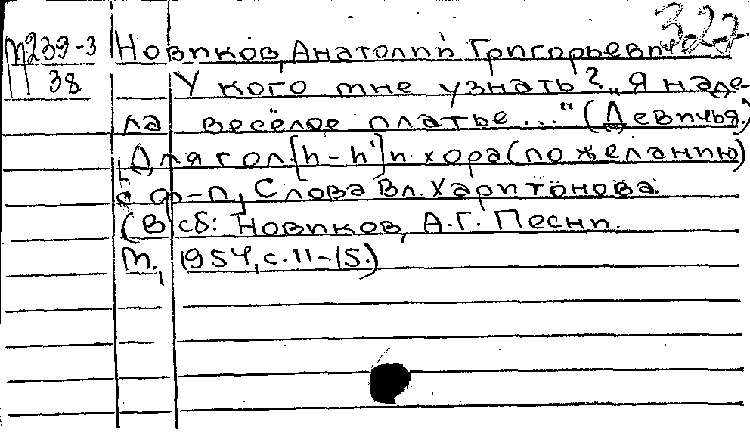 322
П239-3 Новиков, Анатолий Григорьевич
38 У кого мне узнать? „Я наде-
ла весёлое платье..." (Девичья.)
Для гол. [h-h¹] и хора (по желанию)
с ф-п, Слова Вл. Харитонова
(В сб: Новиков, А.Г. Песни.
М., 1954, с.11-15.)